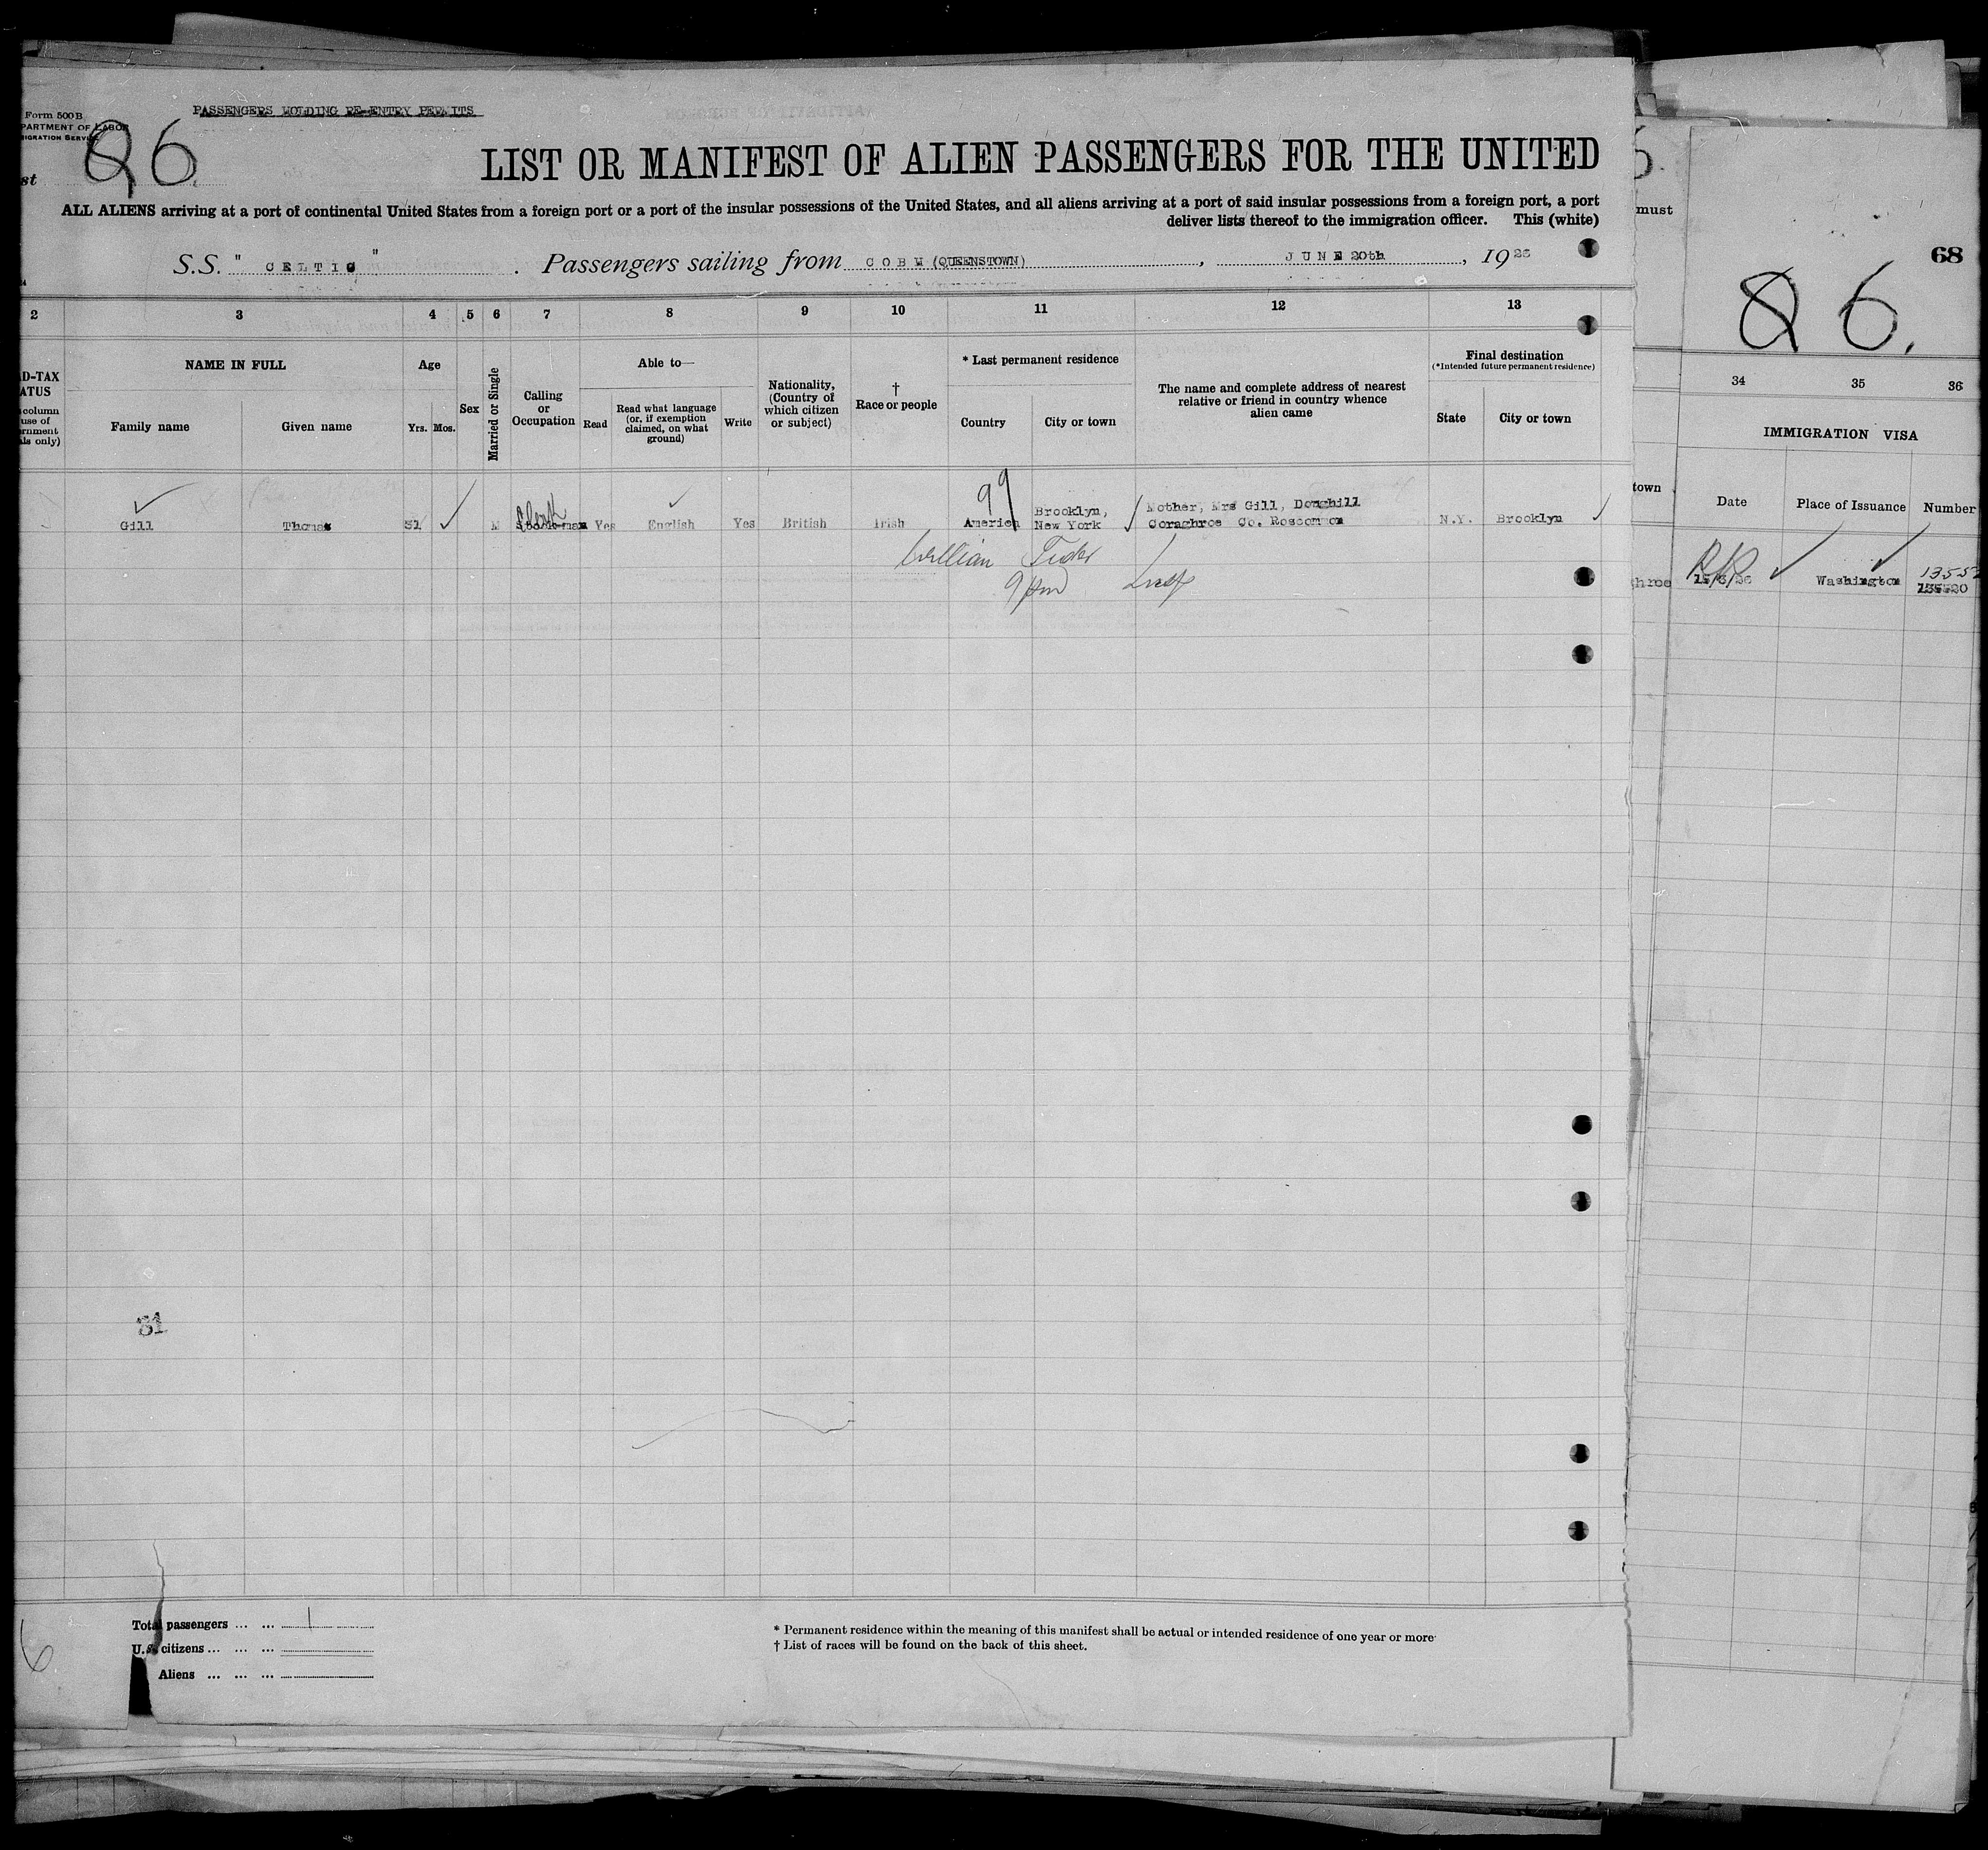 PASSENGERS HOLDING RE-ENTRY PERMITS
Form 500 B
PARTMENT OF LABOR
IGRATION SERVICE
st 86.
LIST OR MANIFEST OF ALIEN PASSENGERS FOR THE UNITED
ALL ALIENS arriving at a port of continental United States from a foreign port or a port of the insular possessions of the United States, and all aliens arriving at a port of said insular possessions from a foreign port, a port
deliver lists thereof to the immigration officer. This (white)
must
S.S. " CELTIC " . Passengers sailing from COBH (QUEENSTOWN), JUNE 20th, 1926
68
86.
2 3 4 5 6 7 8 9 10 11 12 13
34 35 36
D-TAX
ATUS
column
use of
ernment
ls only)
NAME IN FULL
Family name Given name
Age
Yrs. Mos.
Sex
Married or Single
Calling
or
Occupation
Able to—
Read
Read what language
(or, if exemption
claimed, on what
ground)
Write
Nationality,
(Country of
which citizen
or subject)
†
Race or people
* Last permanent residence
Country City or town
The name and complete address of nearest
relative or friend in country whence
alien came
Final destination
(*Intended future permanent residence)
State City or town
town
IMMIGRATION VISA
Date Place of Issuance Number
Gill Thomas 31 M Clerk Yes English Yes British Irish America Brooklyn,
New York
99
Mother, Mrs Gill, Doughill
Coraghroe Co. Roscommon
N.Y. Brooklyn
9 pm
ghroe
Washington
31
Total passengers ... ... 1
U.S. citizens ... ... ...
Aliens ... ... ...
6
* Permanent residence within the meaning of this manifest shall be actual or intended residence of one year or more
† List of races will be found on the back of this sheet.